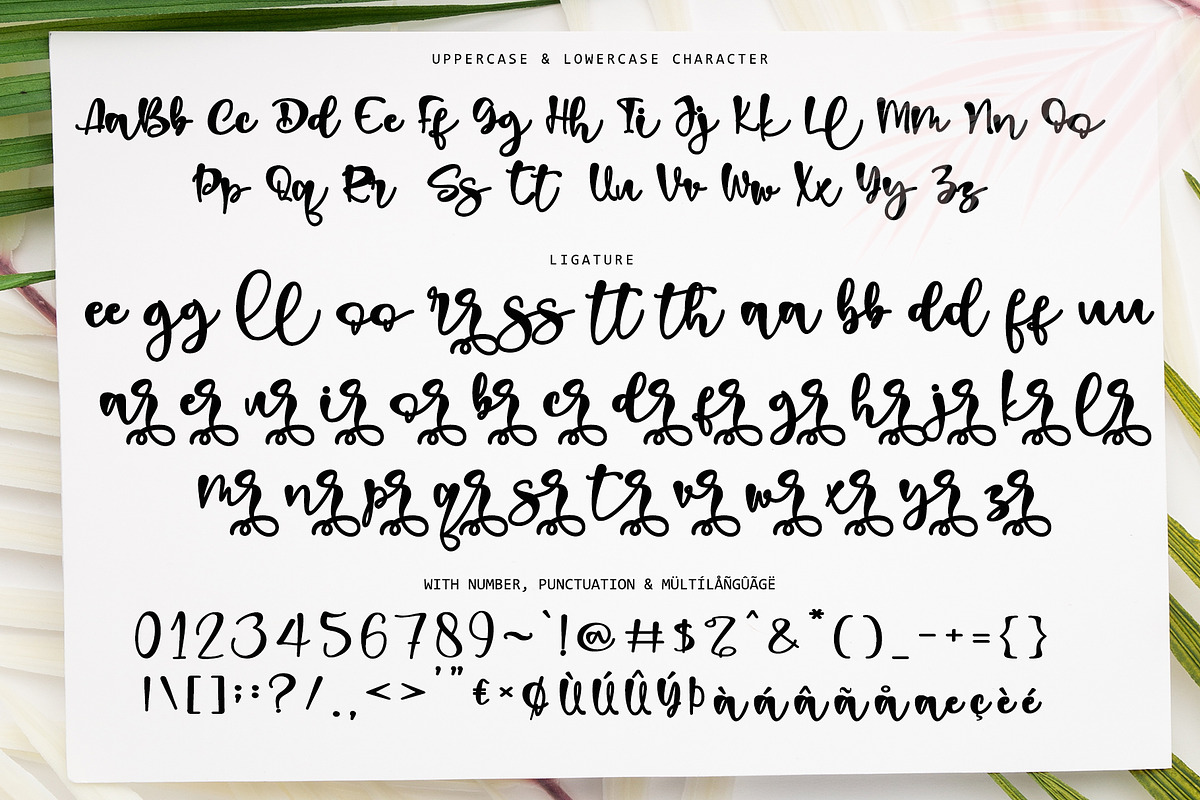 UPPERCASE & LOWERCASE CHARACTER
AaBb Cc Dd Ee Ff Gg Hh Ii Jj Kk Ll Mm Nn Oo
Pp Qq Rr Ss Tt Uu Vv Ww Xx Yy Zz
LIGATURE
ee gg ll oo rr ss tt th aa bb dd ff uu
ar er ur ir or br cr dr fr gr hr jr kr lr
mr nr pr qr sr tr vr wr xr yr zr
WITH NUMBER, PUNCTUATION & MÜLTÍLÅÑGÛÃGË
0123456789~`!@#$%^&*()_-+={}
|\[];:?/.,<>'"€×ØÙÚÛÝÞàáâãåæçèé